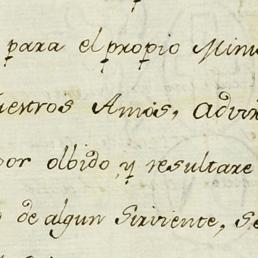 para el propio Mini
uestros Amos, advir
por olbido, y resultare
de algun Sirviente, se